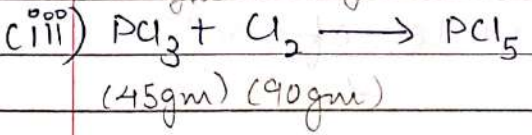 (iii) PCl₃ + Cl₂ ⟶ PCl₅
(45gm) (90gm)